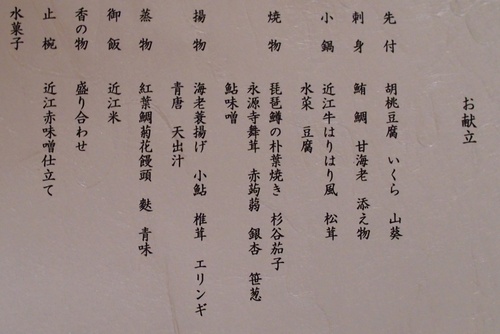 お献立
先付 胡桃豆腐 いくら 山葵
刺身 鮪 鯛 甘海老 添え物
小鍋 近江牛はりはり風 松茸
水菜 豆腐
焼物 琵琶鱒の朴葉焼き 杉谷茄子
永源寺舞茸 赤蒟蒻 銀杏 笹葱
鮎味噌
揚物 海老蓑揚げ 小鮎 椎茸 エリンギ
青唐 天出汁
蒸物 紅葉鯛菊花饅頭 麩 青味
御飯 近江米
香の物 盛り合わせ
止椀 近江赤味噌仕立て
水菓子